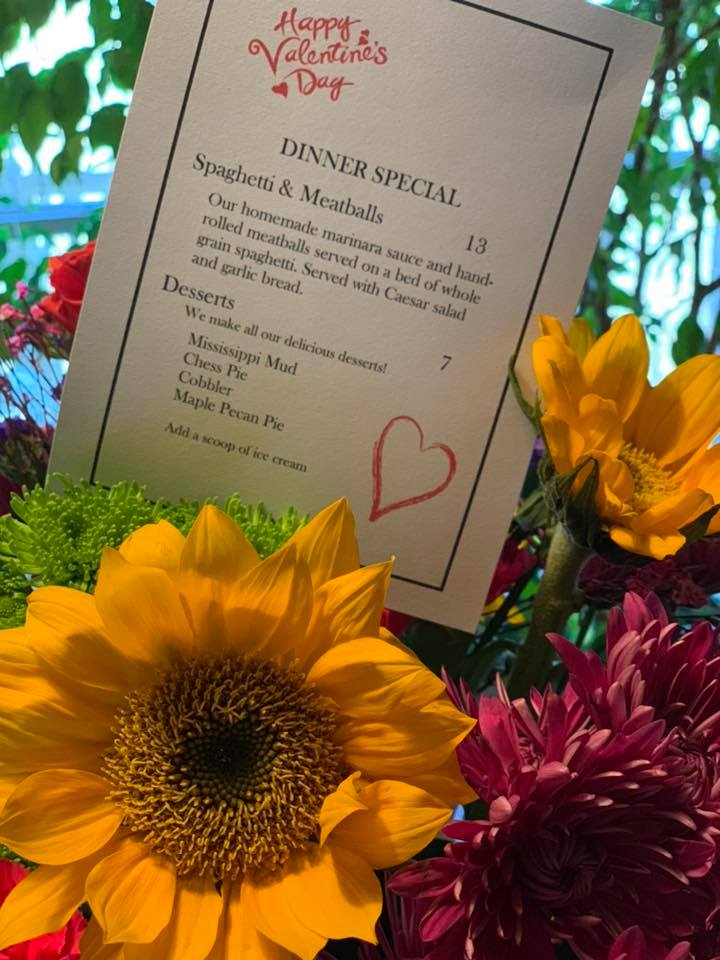 Happy
Valentine's
Day
DINNER SPECIAL
Spaghetti & Meatballs 13
Our homemade marinara sauce and hand-
rolled meatballs served on a bed of whole
grain spaghetti. Served with Caesar salad
and garlic bread.
Desserts 7
We make all our delicious desserts!
Mississippi Mud
Chess Pie
Cobbler
Maple Pecan Pie
Add a scoop of ice cream